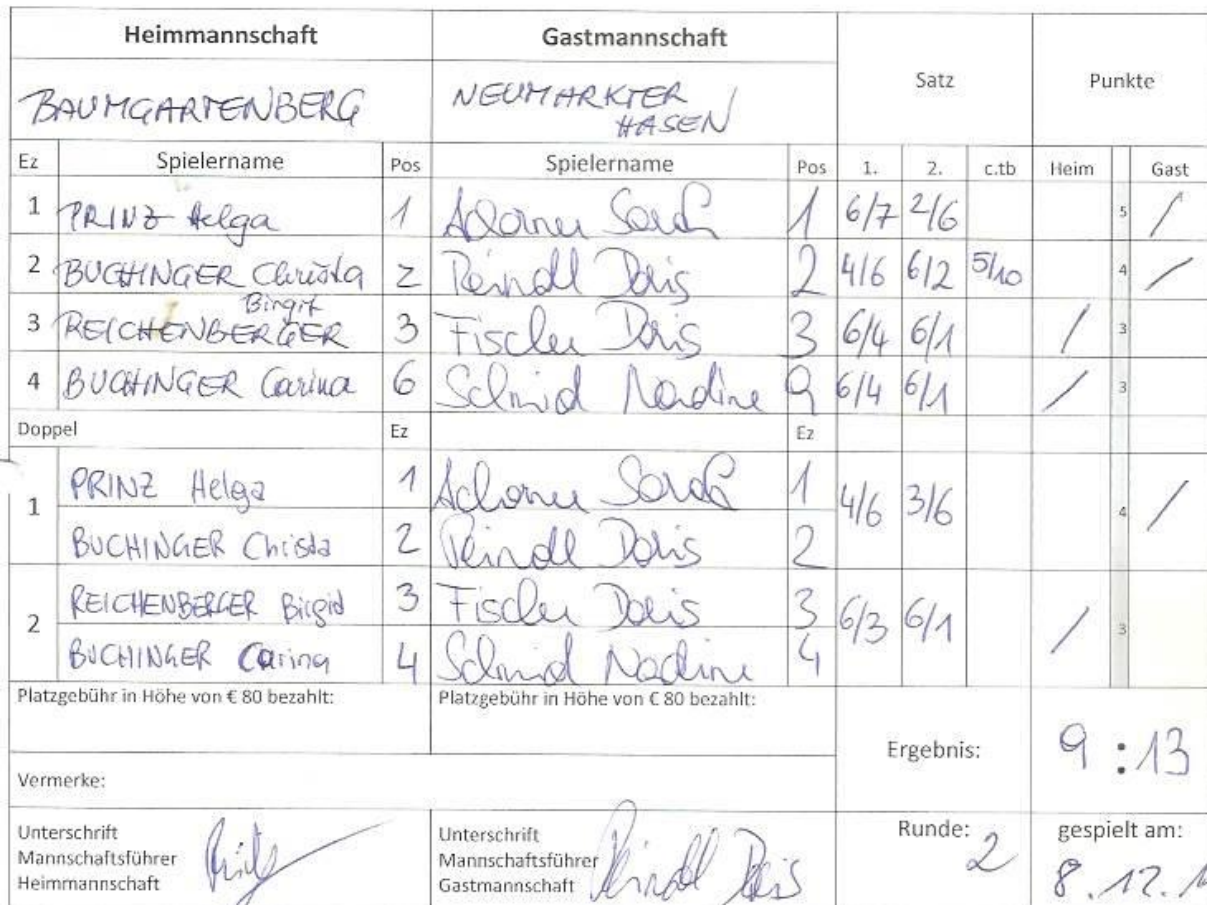 Heimmannschaft Gastmannschaft Satz Punkte
BAUMGARTENBERG NEUMARKTER
HASEN
Ez Spielername Pos Spielername Pos 1. 2. c.tb Heim Gast
1 PRINZ Helga 1 1 6/7 2/6 5 /
2 BUCHINGER Christa 2 Reindl Doris 2 4/6 6/2 5/10 4 /
Birgit
3 REICHENBERGER 3 Fischer Doris 3 6/4 6/1 / 3
4 BUCHINGER Carina 6 Schmid Nadine 9 6/4 6/1 / 3
Doppel Ez Ez
1 PRINZ Helga 1 1 4/6 3/6 4 /
BUCHINGER Christa 2 Reindl Doris 2
2 REICHENBERGER Birgid 3 Fischer Doris 3 6/3 6/1 / 3
BUCHINGER Carina 4 Schmid Nadine 4
Platzgebühr in Höhe von € 80 bezahlt: Platzgebühr in Höhe von € 80 bezahlt:
Ergebnis: 9 : 13
Vermerke:
Unterschrift Unterschrift Runde: 2 gespielt am:
Mannschaftsführer Mannschaftsführer Reindl Doris 8.12.1
Heimmannschaft Gastmannschaft